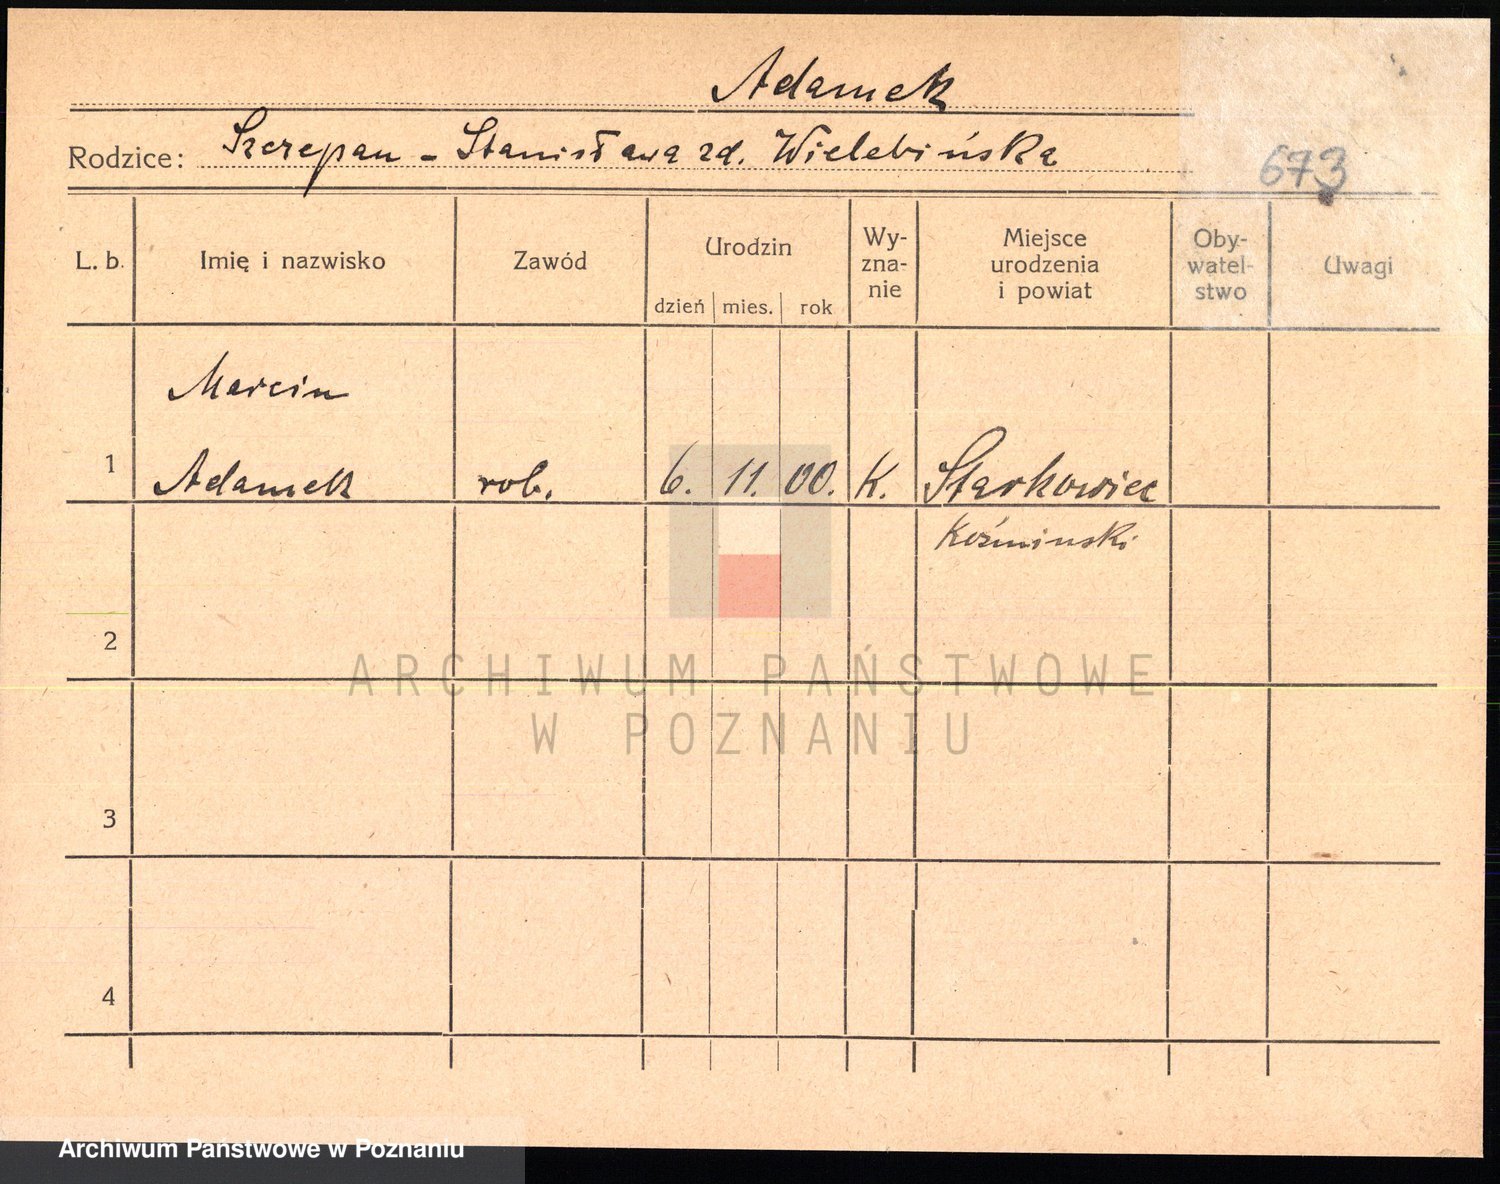 Adamek
Rodzice: Szczepan - Stanisława zd. Wielebińska
673
L. b. Imię i nazwisko Zawód Urodzin dzień mies. rok Wy-zna-nie Miejsce urodzenia i powiat Oby-watel-stwo Uwagi
Marcin
1 Adamek rob. 6. 11. 00. K. Starkowiec
Koźminski
2
ARCHIWUM PAŃSTWOWE
W POZNANIU
3
4
Archiwum Państwowe w Poznaniu